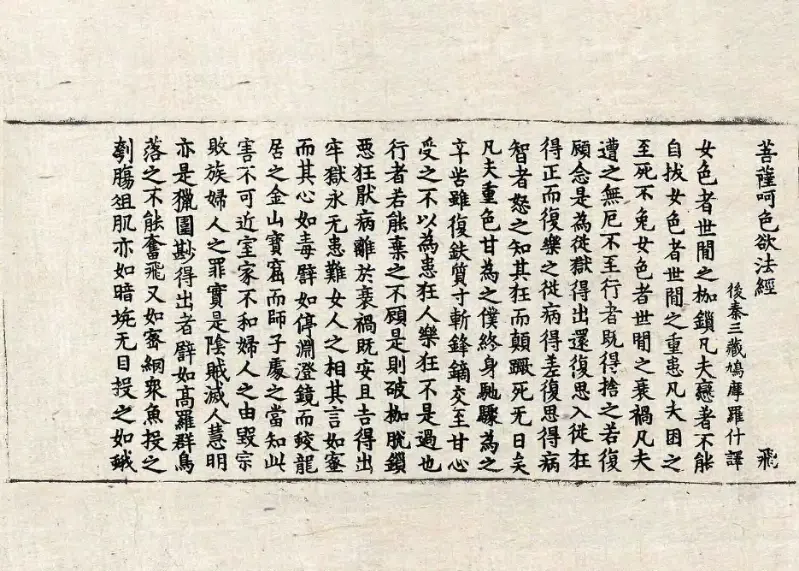 菩薩呵色欲法經 飛
後秦三藏鳩摩羅什譯
女色者世間之枷鎖凡夫戀者不能
自拔女色者世間之重患凡夫困之
至死不免女色者世間之衰禍凡夫
遭之無厄不至行者既得捨之若復
顧念是為從獄得出還復思入從狂
得正而復樂之從病得差復思得病
智者怒之知其狂而顛蹶死无日矣
凡夫重色甘為之僕終身馳驟為之
辛苦雖復鈇質寸斬鋒鏑交至甘心
受之不以為患狂人樂狂不是過也
行者若能棄之不顧是則破枷脫鎖
惡狂厭病離於衰禍既安且吉得出
牢獄永无患難女人之相其言如蜜
而其心如毒譬如停淵澄鏡而蛟龍
居之金山寶窟而師子處之當知此
害不可近室家不和婦人之由毀宗
敗族婦人之罪實是陰賊滅人慧明
亦是獵圍尠得出者譬如高羅群鳥
落之不能奮飛又如密網眾魚投之
刳腸俎肌亦如暗坑无目投之如蛾